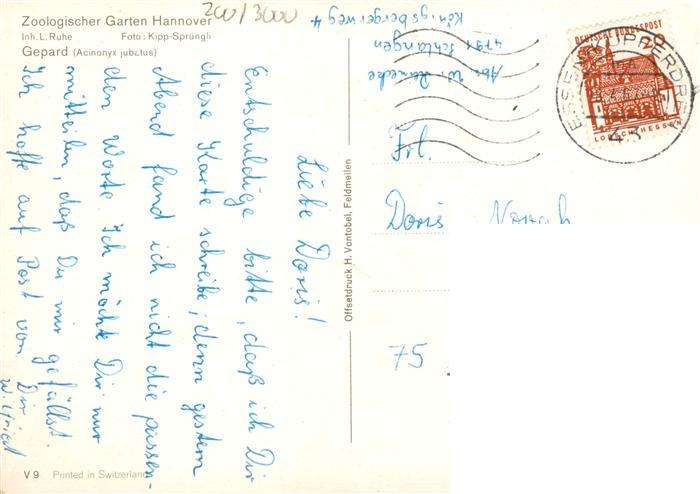 Zoologischer Garten Hannover
Inh. L. Ruhe Foto: Kipp-Sprüngli
Gepard (Acinonyx jubatus)
200/3000
Abs. W. Reinecke
4791 Schlangen
Königsbergerweg 4
DEUTSCHE BUNDESPOST
20
LORSCH/HESSEN
ESSEN-KUPFERDREH
Liebe Doris!
Entschuldige bitte, daß ich Dir
diese Karte schreibe, denn gestern
Abend fand ich nicht die passen-
den Worte. Ich möchte Dir nur
mitteilen, daß Du mir gefällst.
Ich hoffe auf Post von Dir
Offsetdruck H. Vontobel, Feldmeilen
Frl.
Doris
75
V 9 Printed in Switzerland